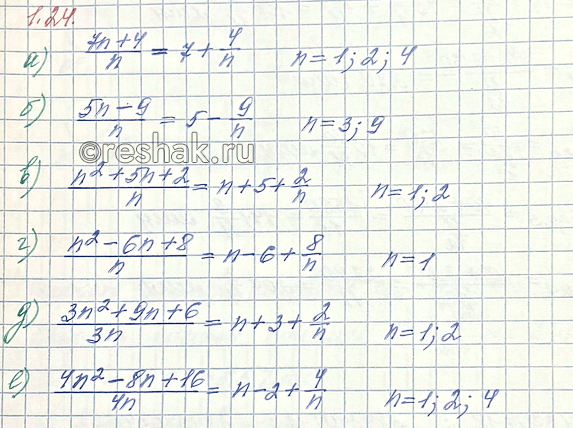 1.24.
а) (7n+4)/n = 7 + 4/n n = 1; 2; 4
б) (5n-9)/n = 5 - 9/n n = 3; 9
©reshak.ru
в) (n²+5n+2)/n = n+5+2/n n = 1; 2
г) (n²-6n+8)/n = n-6+8/n n = 1
д) (3n²+9n+6)/3n = n+3+2/n n = 1; 2
е) (4n²-8n+16)/4n = n-2+4/n n = 1; 2; 4